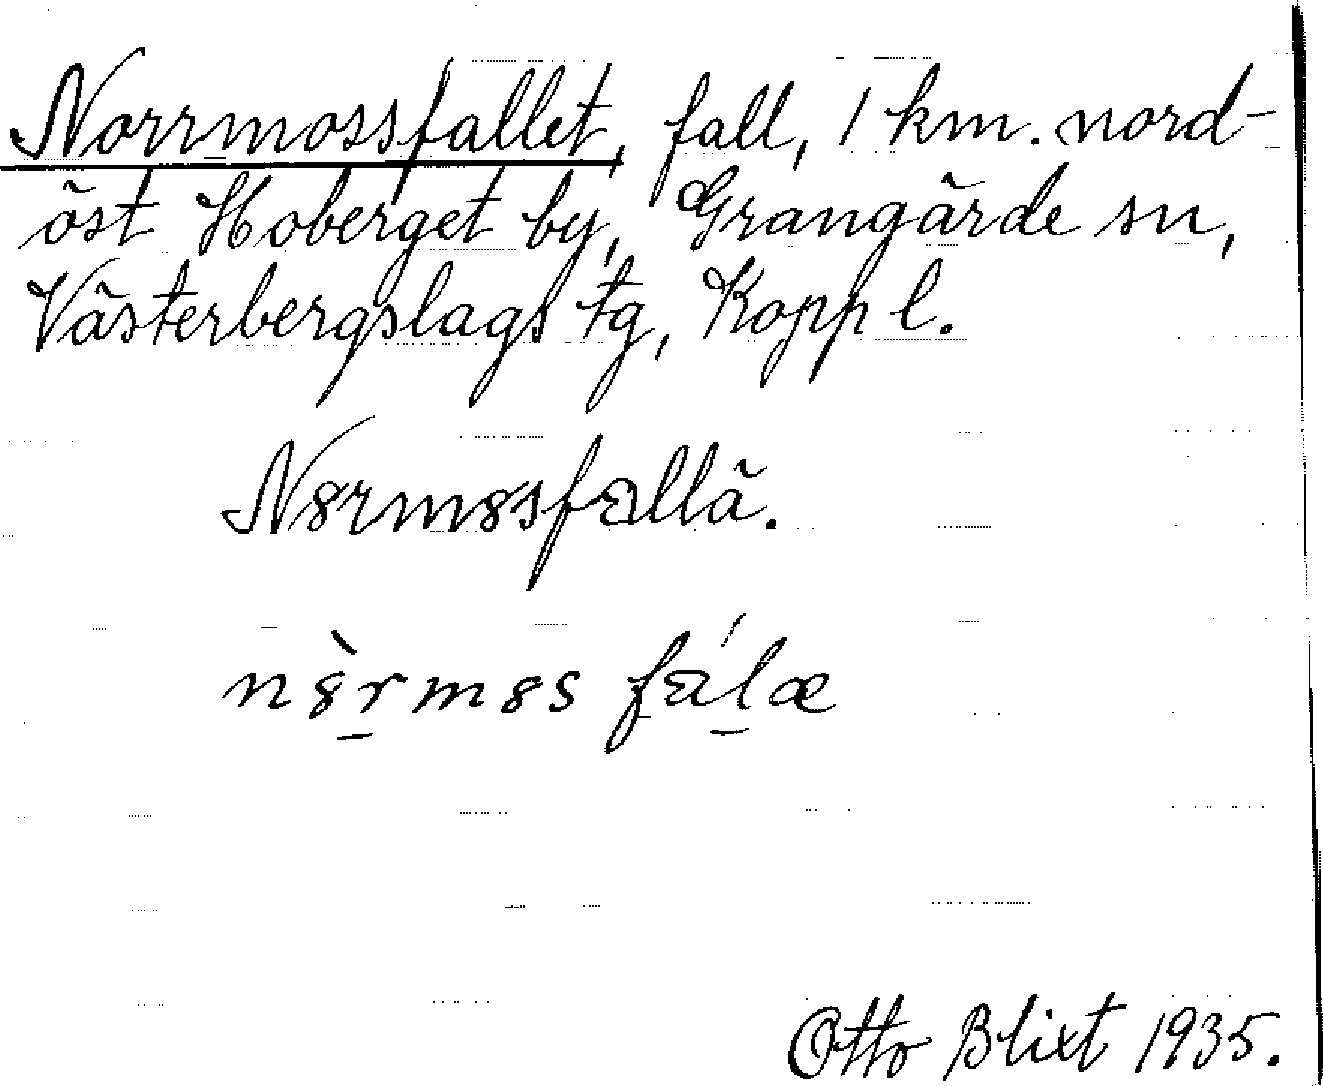 Norrmossfallet, fall, 1 km. nord-
öst Hoberget by, Grangärde sn,
Västerbergslags tg, Kopp l.
N8rm8sfallä.
n8̀rm8s fálæ
Otto Blixt 1935.